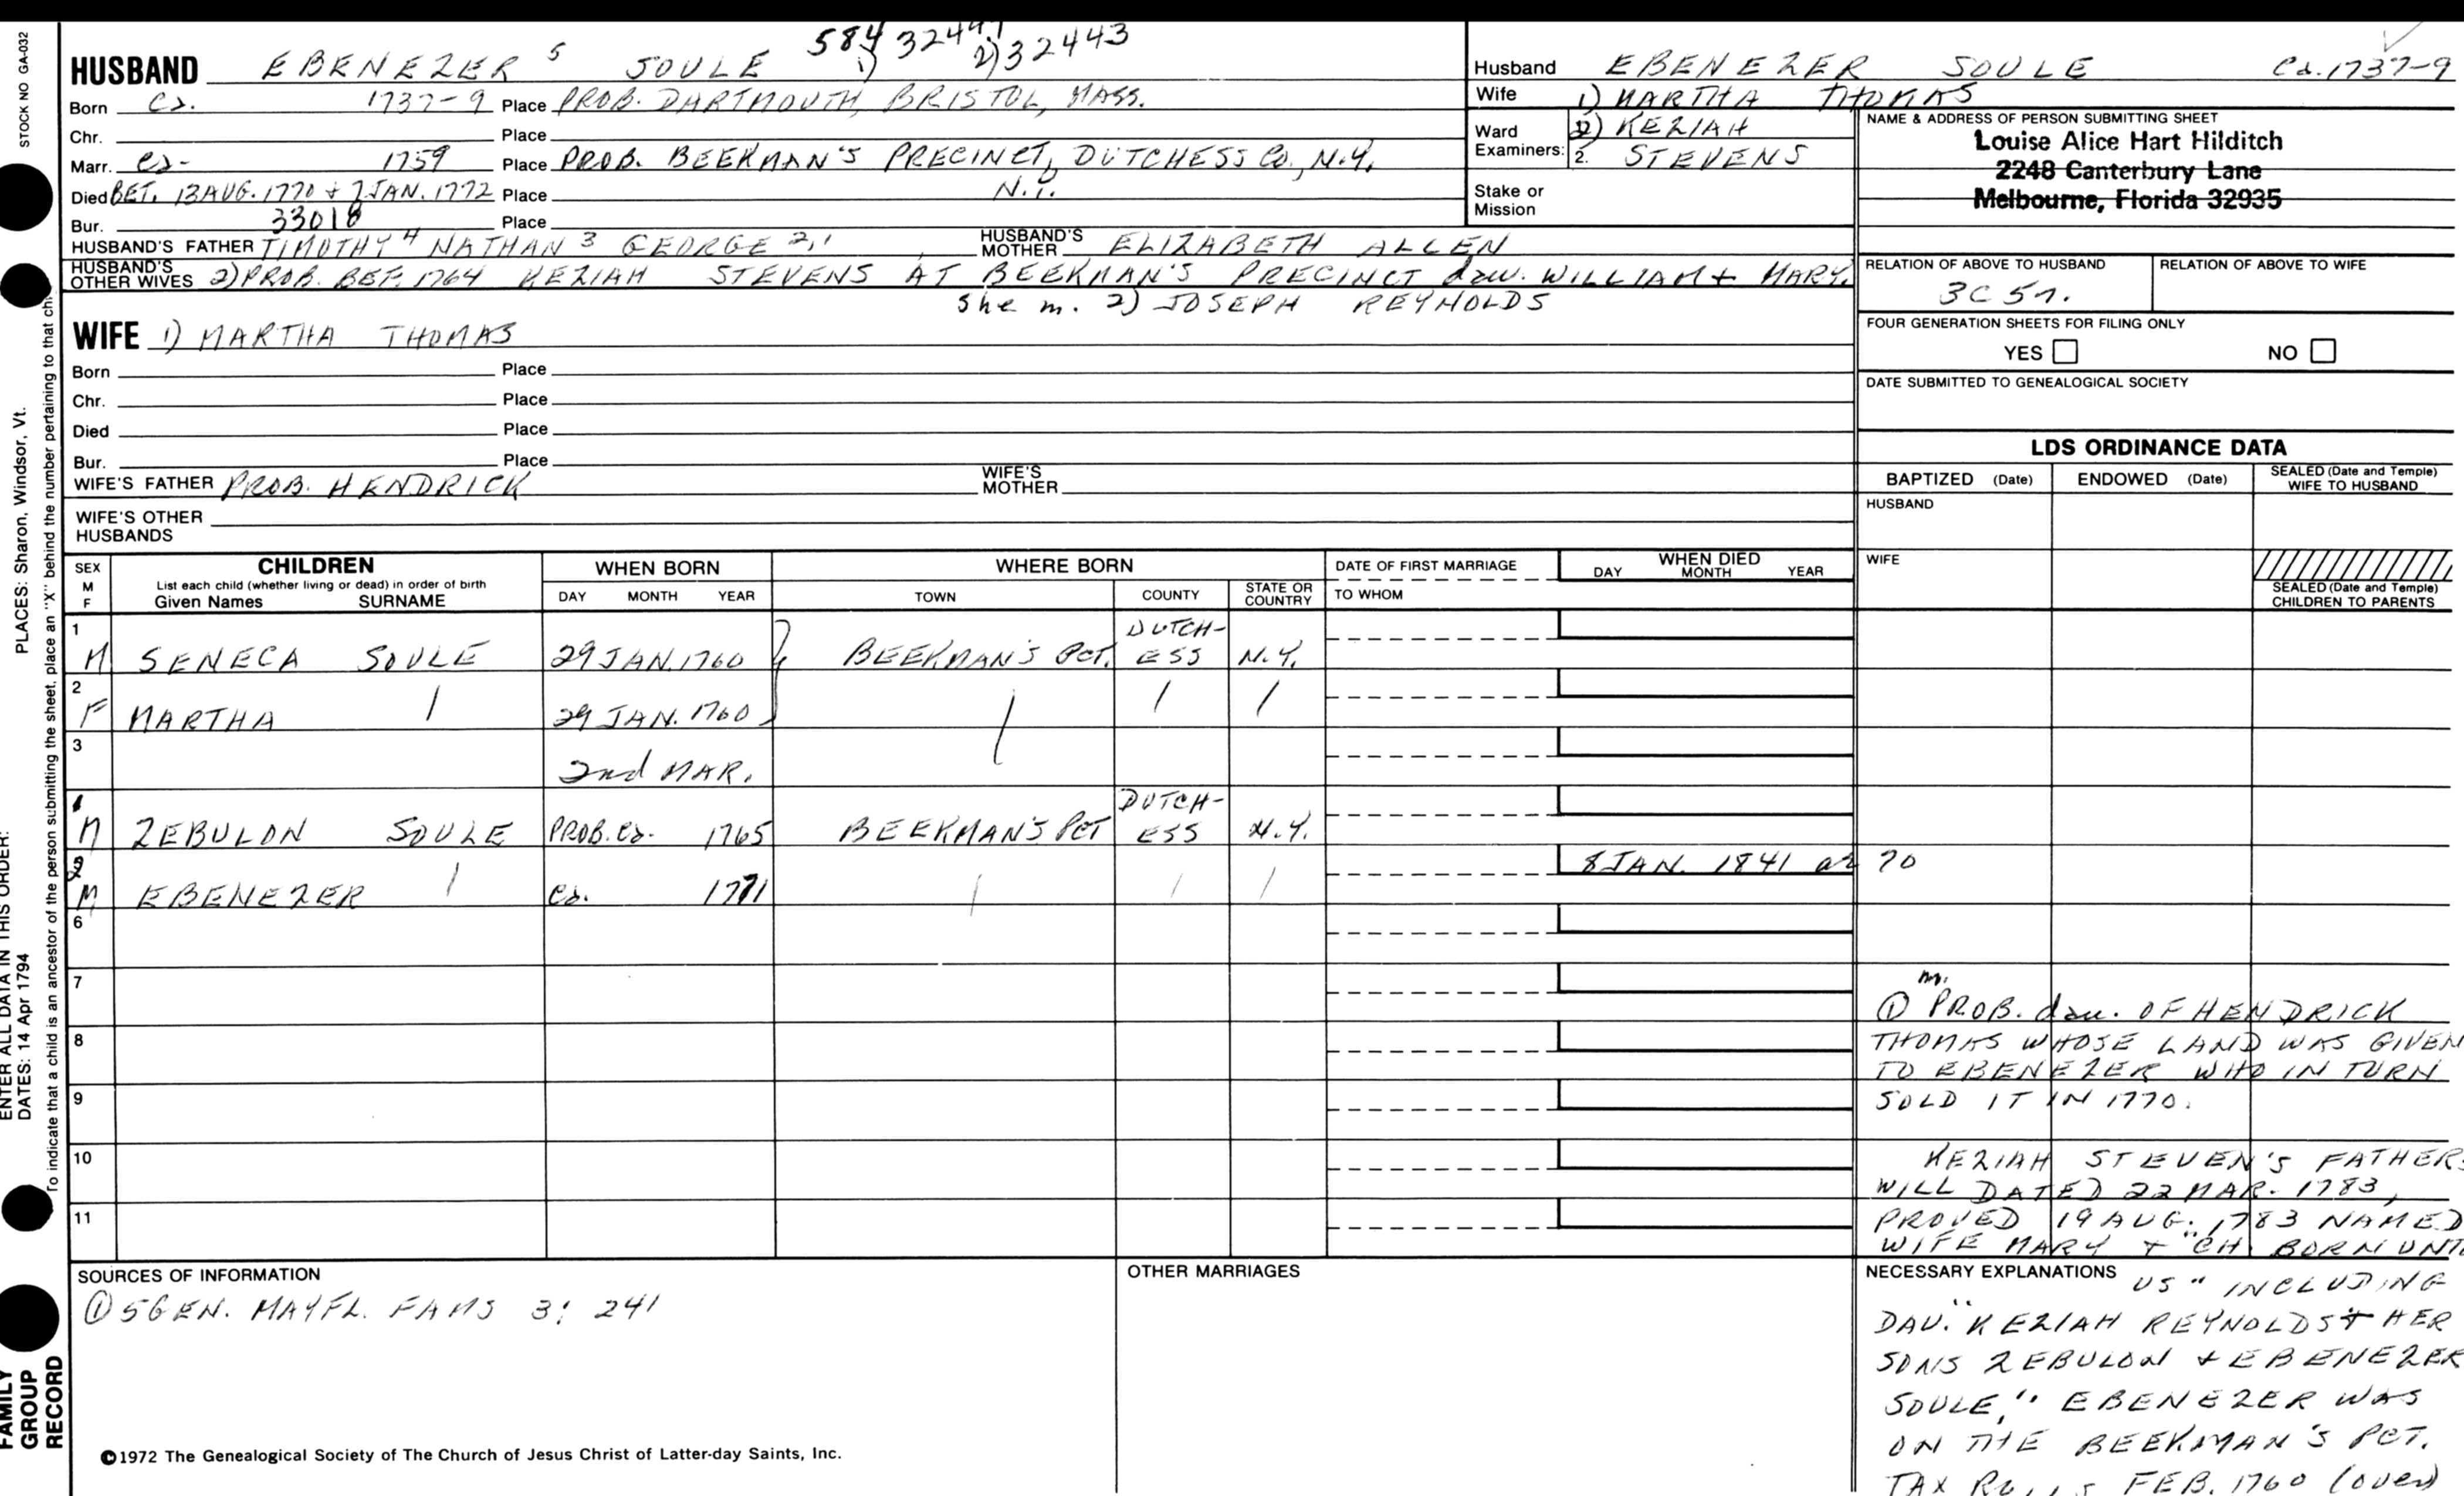 HUSBAND EBENEZER 5 SOULE 584 1) 32441 2) 32443
Born Ca. 1737-9 Place PROB. DARTMOUTH, BRISTOL, MASS.
Chr. Place
Marr. Ca- 1759 Place PROB. BEEKMAN'S PRECINCT, DUTCHESS Co., N.Y.
Died BET. 13 AUG. 1770 + 7 JAN. 1772 Place N.Y.
Bur. 33018 Place
HUSBAND'S FATHER TIMOTHY 4 NATHAN 3 GEORGE 2,1 HUSBAND'S MOTHER ELIZABETH ALLEN
HUSBAND'S OTHER WIVES 2) PROB. BEF. 1764 KEZIAH STEVENS AT BEEKMAN'S PRECINCT dau. WILLIAM + MARY.
She m. 2) JOSEPH REYNOLDS
WIFE 1) MARTHA THOMAS
Born Place
Chr. Place
Died Place
Bur. Place
WIFE'S FATHER PROB. HENDRICK WIFE'S MOTHER
WIFE'S OTHER HUSBANDS
Husband EBENEZER SOULE Ca. 1737-9
Wife 1) MARTHA THOMAS
Ward Examiners: 2) KEZIAH
2. STEVENS
Stake or Mission
NAME & ADDRESS OF PERSON SUBMITTING SHEET
Louise Alice Hart Hilditch
2248 Canterbury Lane
Melbourne, Florida 32935
RELATION OF ABOVE TO HUSBAND RELATION OF ABOVE TO WIFE
3C 5r.
FOUR GENERATION SHEETS FOR FILING ONLY
YES NO
DATE SUBMITTED TO GENEALOGICAL SOCIETY
LDS ORDINANCE DATA
BAPTIZED (Date) ENDOWED (Date) SEALED (Date and Temple) WIFE TO HUSBAND
HUSBAND
WIFE
SEALED (Date and Temple) CHILDREN TO PARENTS
SEX M F CHILDREN WHEN BORN WHERE BORN DATE OF FIRST MARRIAGE WHEN DIED
List each child (whether living or dead) in order of birth
Given Names SURNAME DAY MONTH YEAR TOWN COUNTY STATE OR COUNTRY TO WHOM DAY MONTH YEAR
1 M SENECA SOULE 29 JAN. 1760 BEEKMAN'S PCT. DUTCH-ESS N.Y.
2 F MARTHA 29 JAN. 1760
3 2nd MAR.
1 M ZEBULON SOULE PROB. Ca. 1765 BEEKMAN'S PCT DUTCH-ESS N.Y.
2 M EBENEZER Ca. 1771 8 JAN. 1841 ae 70
6
7
8
9
10
11
m.
① PROB. dau. OF HENDRICK
THOMAS WHOSE LAND WAS GIVEN
TO EBENEZER WHO IN TURN
SOLD IT IN 1770.
KEZIAH STEVEN'S FATHERS
WILL DATED 22 MAR. 1783,
PROVED 19 AUG. 1783 NAMED
WIFE MARY + "CH. BORN UNTO
SOURCES OF INFORMATION
① 5 GEN. MAYFL. FAMS 3: 241
OTHER MARRIAGES
NECESSARY EXPLANATIONS US" INCLUDING
DAU. "KEZIAH REYNOLDS + HER
SONS ZEBULON + EBENEZER
SOULE," EBENEZER WAS
ON THE BEEKMAN'S PCT.
TAX ROLLS FEB. 1760 (over)
©1972 The Genealogical Society of The Church of Jesus Christ of Latter-day Saints, Inc.
STOCK NO GA-032
PLACES: Sharon, Windsor, Vt.
ENTER ALL DATA IN THIS ORDER:
DATES: 14 Apr 1794
To indicate that a child is an ancestor of the person submitting the sheet, place an "X" behind the number pertaining to that chi
FAMILY GROUP RECORD